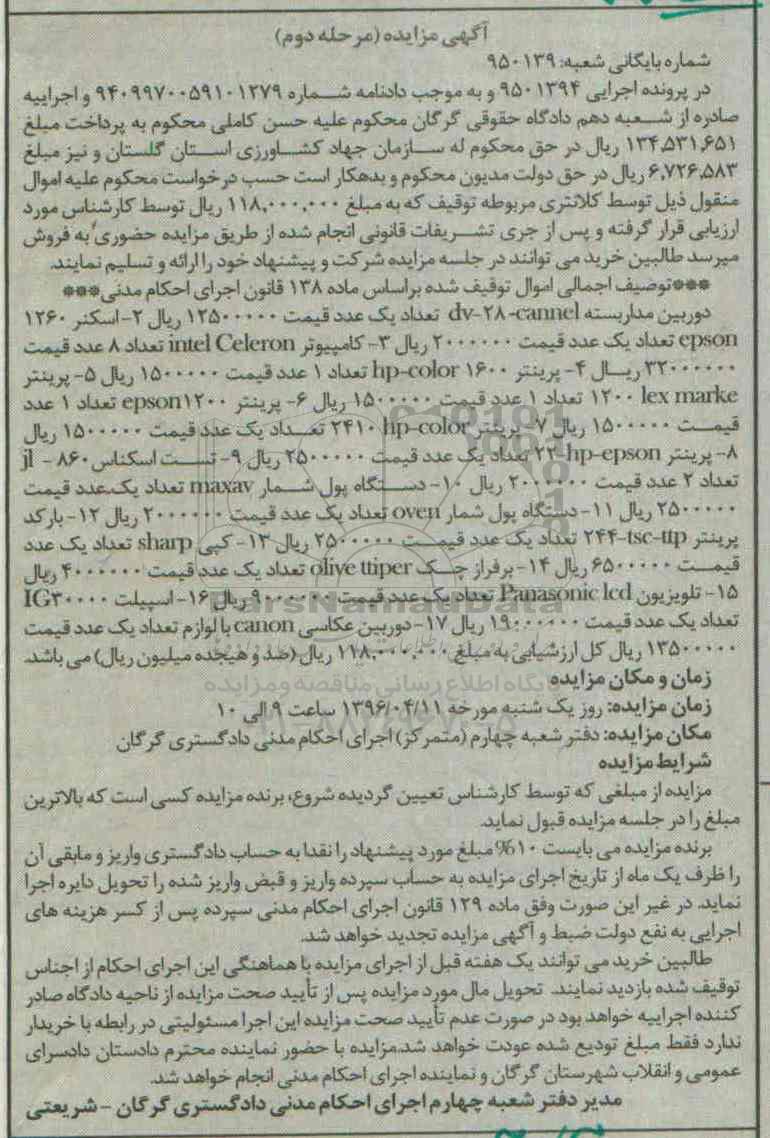 آگهی مزایده (مرحله دوم)
شماره بایگانی شعبه: ۹۵۰۱۳۹
در پرونده اجرایی ۹۵۰۱۳۹۴ و به موجب دادنامه شماره ۹۴۰۹۹۷۰۰۵۹۱۰۱۲۷۹ و اجراییه
صادره از شعبه دهم دادگاه حقوقی گرگان محکوم علیه حسن کاملی محکوم به پرداخت مبلغ
۱۳۴,۵۳۱,۶۵۱ ریال در حق محکوم له سازمان جهاد کشاورزی استان گلستان و نیز مبلغ
۶,۷۲۶,۵۸۳ ریال در حق دولت مدیون محکوم و بدهکار است حسب درخواست محکوم علیه اموال
منقول ذیل توسط کلانتری مربوطه توقیف که به مبلغ ۱۱۸,۰۰۰,۰۰۰ ریال توسط کارشناس مورد
ارزیابی قرار گرفته و پس از جری تشریفات قانونی انجام شده از طریق مزایده حضوری به فروش
میرسد طالبین خرید می توانند در جلسه مزایده شرکت و پیشنهاد خود را ارائه و تسلیم نمایند.
***توصیف اجمالی اموال توقیف شده براساس ماده ۱۳۸ قانون اجرای احکام مدنی***
دوربین مداربسته dv-۲۸-cannel تعداد یک عدد قیمت ۱۲۵۰۰۰۰۰ ریال ۲- اسکنر ۱۲۶۰
epson تعداد یک عدد قیمت ۲۰۰۰۰۰۰ ریال ۳- کامپیوتر intel Celeron تعداد ۸ عدد قیمت
۳۲۰۰۰۰۰۰ ریال ۴- پرینتر hp-color ۱۶۰۰ تعداد ۱ عدد قیمت ۱۵۰۰۰۰۰ ریال ۵- پرینتر
lex marke ۱۲۰۰ تعداد ۱ عدد قیمت ۱۵۰۰۰۰۰ ریال ۶- پرینتر epson۱۲۰۰ تعداد ۱ عدد
قیمت ۱۵۰۰۰۰۰ ریال ۷- پرینتر hp-color ۲۴۱۰ تعداد یک عدد قیمت ۱۵۰۰۰۰۰ ریال
۸- پرینتر ۲۲-hp-epson تعداد یک عدد قیمت ۲۵۰۰۰۰۰ ریال ۹- تست اسکناس ۸۶۰ - jl
تعداد ۲ عدد قیمت ۲۰۰۰۰۰۰ ریال ۱۰- دستگاه پول شمار maxav تعداد یک عدد قیمت
۲۵۰۰۰۰۰ ریال ۱۱- دستگاه پول شمار oven تعداد یک عدد قیمت ۲۰۰۰۰۰۰ ریال ۱۲- بارکد
پرینتر ۲۴۴-tsc-ttp تعداد یک عدد قیمت ۲۵۰۰۰۰۰ ریال ۱۳- کپی sharp تعداد یک عدد
قیمت ۶۵۰۰۰۰۰ ریال ۱۴- پرفراز چک olive ttiper تعداد یک عدد قیمت ۴۰۰۰۰۰۰ ریال
۱۵- تلویزیون Panasonic lcd تعداد یک عدد قیمت ۹۰۰۰۰۰۰ ریال ۱۶- اسپیلت IG۳۰۰۰۰
تعداد یک عدد قیمت ۱۹۰۰۰۰۰۰ ریال ۱۷- دوربین عکاسی canon با لوازم تعداد یک عدد قیمت
۱۳۵۰۰۰۰۰ ریال کل ارزشیابی به مبلغ ۱۱۸,۰۰۰,۰۰۰ ریال (صد و هیجده میلیون ریال) می باشد.
زمان و مکان مزایده
زمان مزایده: روز یک شنبه مورخه ۱۳۹۶/۰۴/۱۱ ساعت ۹ الی ۱۰
مکان مزایده: دفتر شعبه چهارم (متمرکز) اجرای احکام مدنی دادگستری گرگان
شرایط مزایده
مزایده از مبلغی که توسط کارشناس تعیین گردیده شروع، برنده مزایده کسی است که بالاترین
مبلغ را در جلسه مزایده قبول نماید.
برنده مزایده می بایست ۱۰% مبلغ مورد پیشنهاد را نقدا به حساب دادگستری واریز و مابقی آن
را ظرف یک ماه از تاریخ اجرای مزایده به حساب سپرده واریز و قبض واریز شده را تحویل دایره اجرا
نماید. در غیر این صورت وفق ماده ۱۲۹ قانون اجرای احکام مدنی سپرده پس از کسر هزینه های
اجرایی به نفع دولت ضبط و آگهی مزایده تجدید خواهد شد.
طالبین خرید می توانند یک هفته قبل از اجرای مزایده با هماهنگی این اجرای احکام از اجناس
توقیف شده بازدید نمایند. تحویل مال مورد مزایده پس از تأیید صحت مزایده از ناحیه دادگاه صادر
کننده اجراییه خواهد بود در صورت عدم تأیید صحت مزایده این اجرا مسئولیتی در رابطه با خریدار
ندارد فقط مبلغ تودیع شده عودت خواهد شد.مزایده با حضور نماینده محترم دادستان دادسرای
عمومی و انقلاب شهرستان گرگان و نماینده اجرای احکام مدنی انجام خواهد شد.
مدیر دفتر شعبه چهارم اجرای احکام مدنی دادگستری گرگان - شریعتی
ParsNamadData
پایگاه اطلاع رسانی مناقصه و مزایده